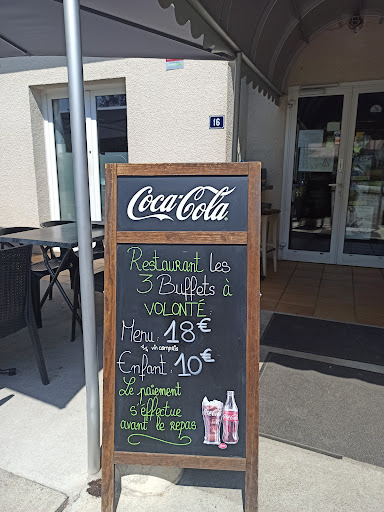 16
Coca-Cola
Restaurant les
3 Buffets à
VOLONTÉ:
Menu: 18€
1/4 vin compris
Enfant: 10€
Le paiement
s'effectue
avant le repas